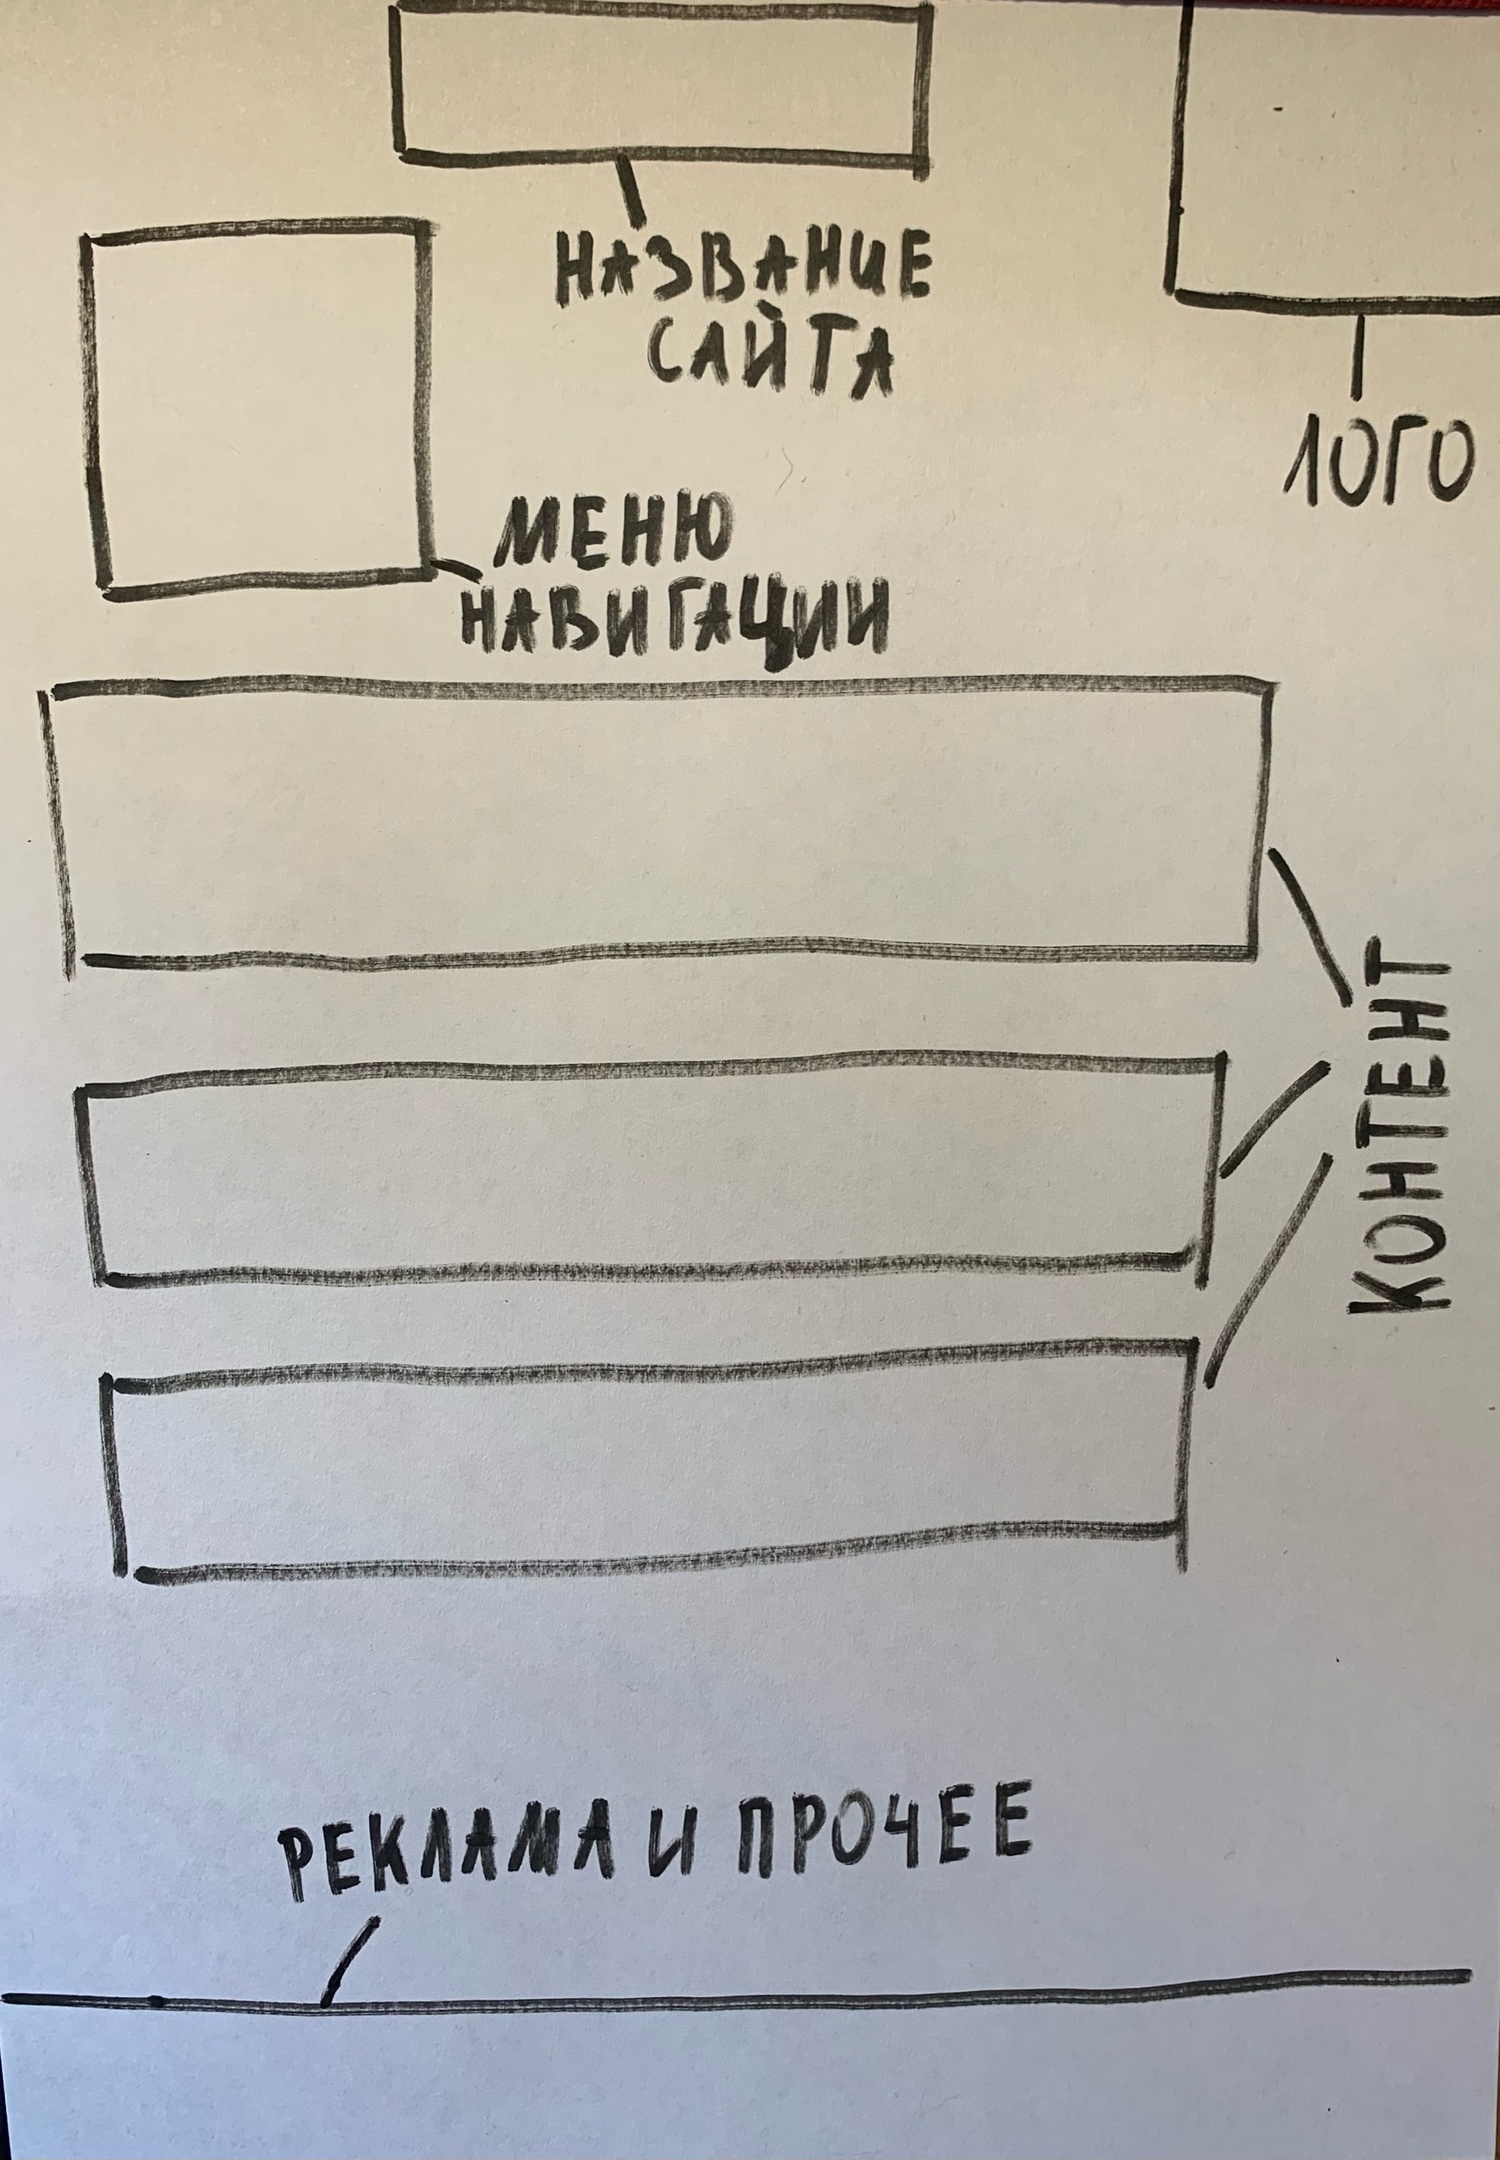 НАЗВАНИЕ
САЙТА
ЛОГО
МЕНЮ
НАВИГАЦИИ
КОНТЕНТ
РЕКЛАМА И ПРОЧЕЕ